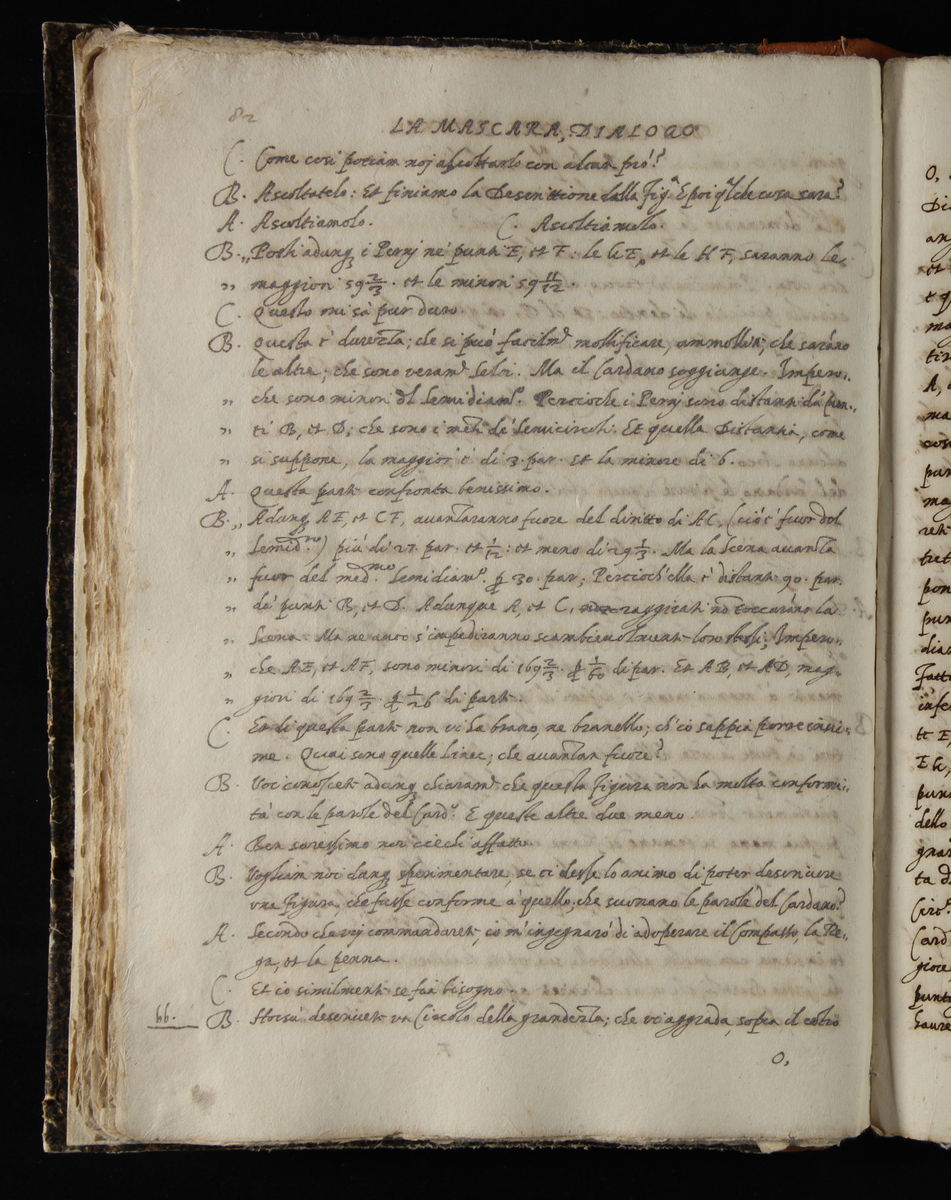 82
LA MASCARA, DIALOGO
C. Come così potiam noj ascoltarlo con alcun prò?
B. Ascoltatelo: Et finiamo la Descrittione dalla fig.ª E poi q.lche cosa sarà?
A. Ascoltiamolo. C. Ascoltiamolo.
B. „ Posti adunq; i Pernj ne' punti E, et F: le G E, et le H F, saranno le
„ maggiori 59 2/3. et le minori 59 11/12.
C. Questo mi sà pur duro.
B. Questa è durezza; che si può facilm.te mollificare, ammollir; che saràno
le altre; che sono veram.te selci. Ma il Cardano soggiunge. Impero..
„ che sono minori del semidiam.º Percioche i Pernj sono distanti da' pun..
„ ti B, et D; che sono i meti de' semicircoli. Et quella Distantia, come
„ si suppone, la maggior è di 3. par. Et la minore di 6.
A. Questa parte confronta benissimo.
B. „ Adunq; AE, et CF, auantaranno fuore del diritto di AC, (ciò è fuor del
„ semid.ro) più di 27. par. et 1/12: et meno di 29 1/3. Ma la scena auanza
„ fuor del med.mo semidiam.º p 30. par; Percioch'ella è distante 90. par.
„ de' punti B, et D. Adunque A, et C, raggirati nõ toccaràno la
„ scena. Ma ne anco s'impediranno scambieuolmente loro stessi; Impero..
„ che AE, et AF, sono minori di 169 2/3. p 1/60 di par. Et AB, et AD, mag..
„ giori di 169 2/3. p 1/26 di parte.
C. Et di questa parte non vi ha brano, ne branello; ch'io sappia porre insie..
me. Quai sono quelle linee; che auanzan fuore?
B. Voi conoscete adunq; chiaram.te che questa figura non ha molta conformi..
tà con le parole del Card.º E queste altre due meno.
A. Ben saressimo noi ciechi affatto.
B. Vogliam noi dunq; sperimentare, se ci desse lo animo di poter descriuere
vna figura, che fosse conforme à quello; che suonano le parole del Cardano?
A. Secondo che voj commandarete, io m'ingegnarò di adoperare il Compasso, la Ri..
ga, et la penna.
C. Et io similmente se fia bisogno.
66. B. Horsù descriuete vn Circolo della grandezza; che vi aggrada, sopra il cẽtro
O,